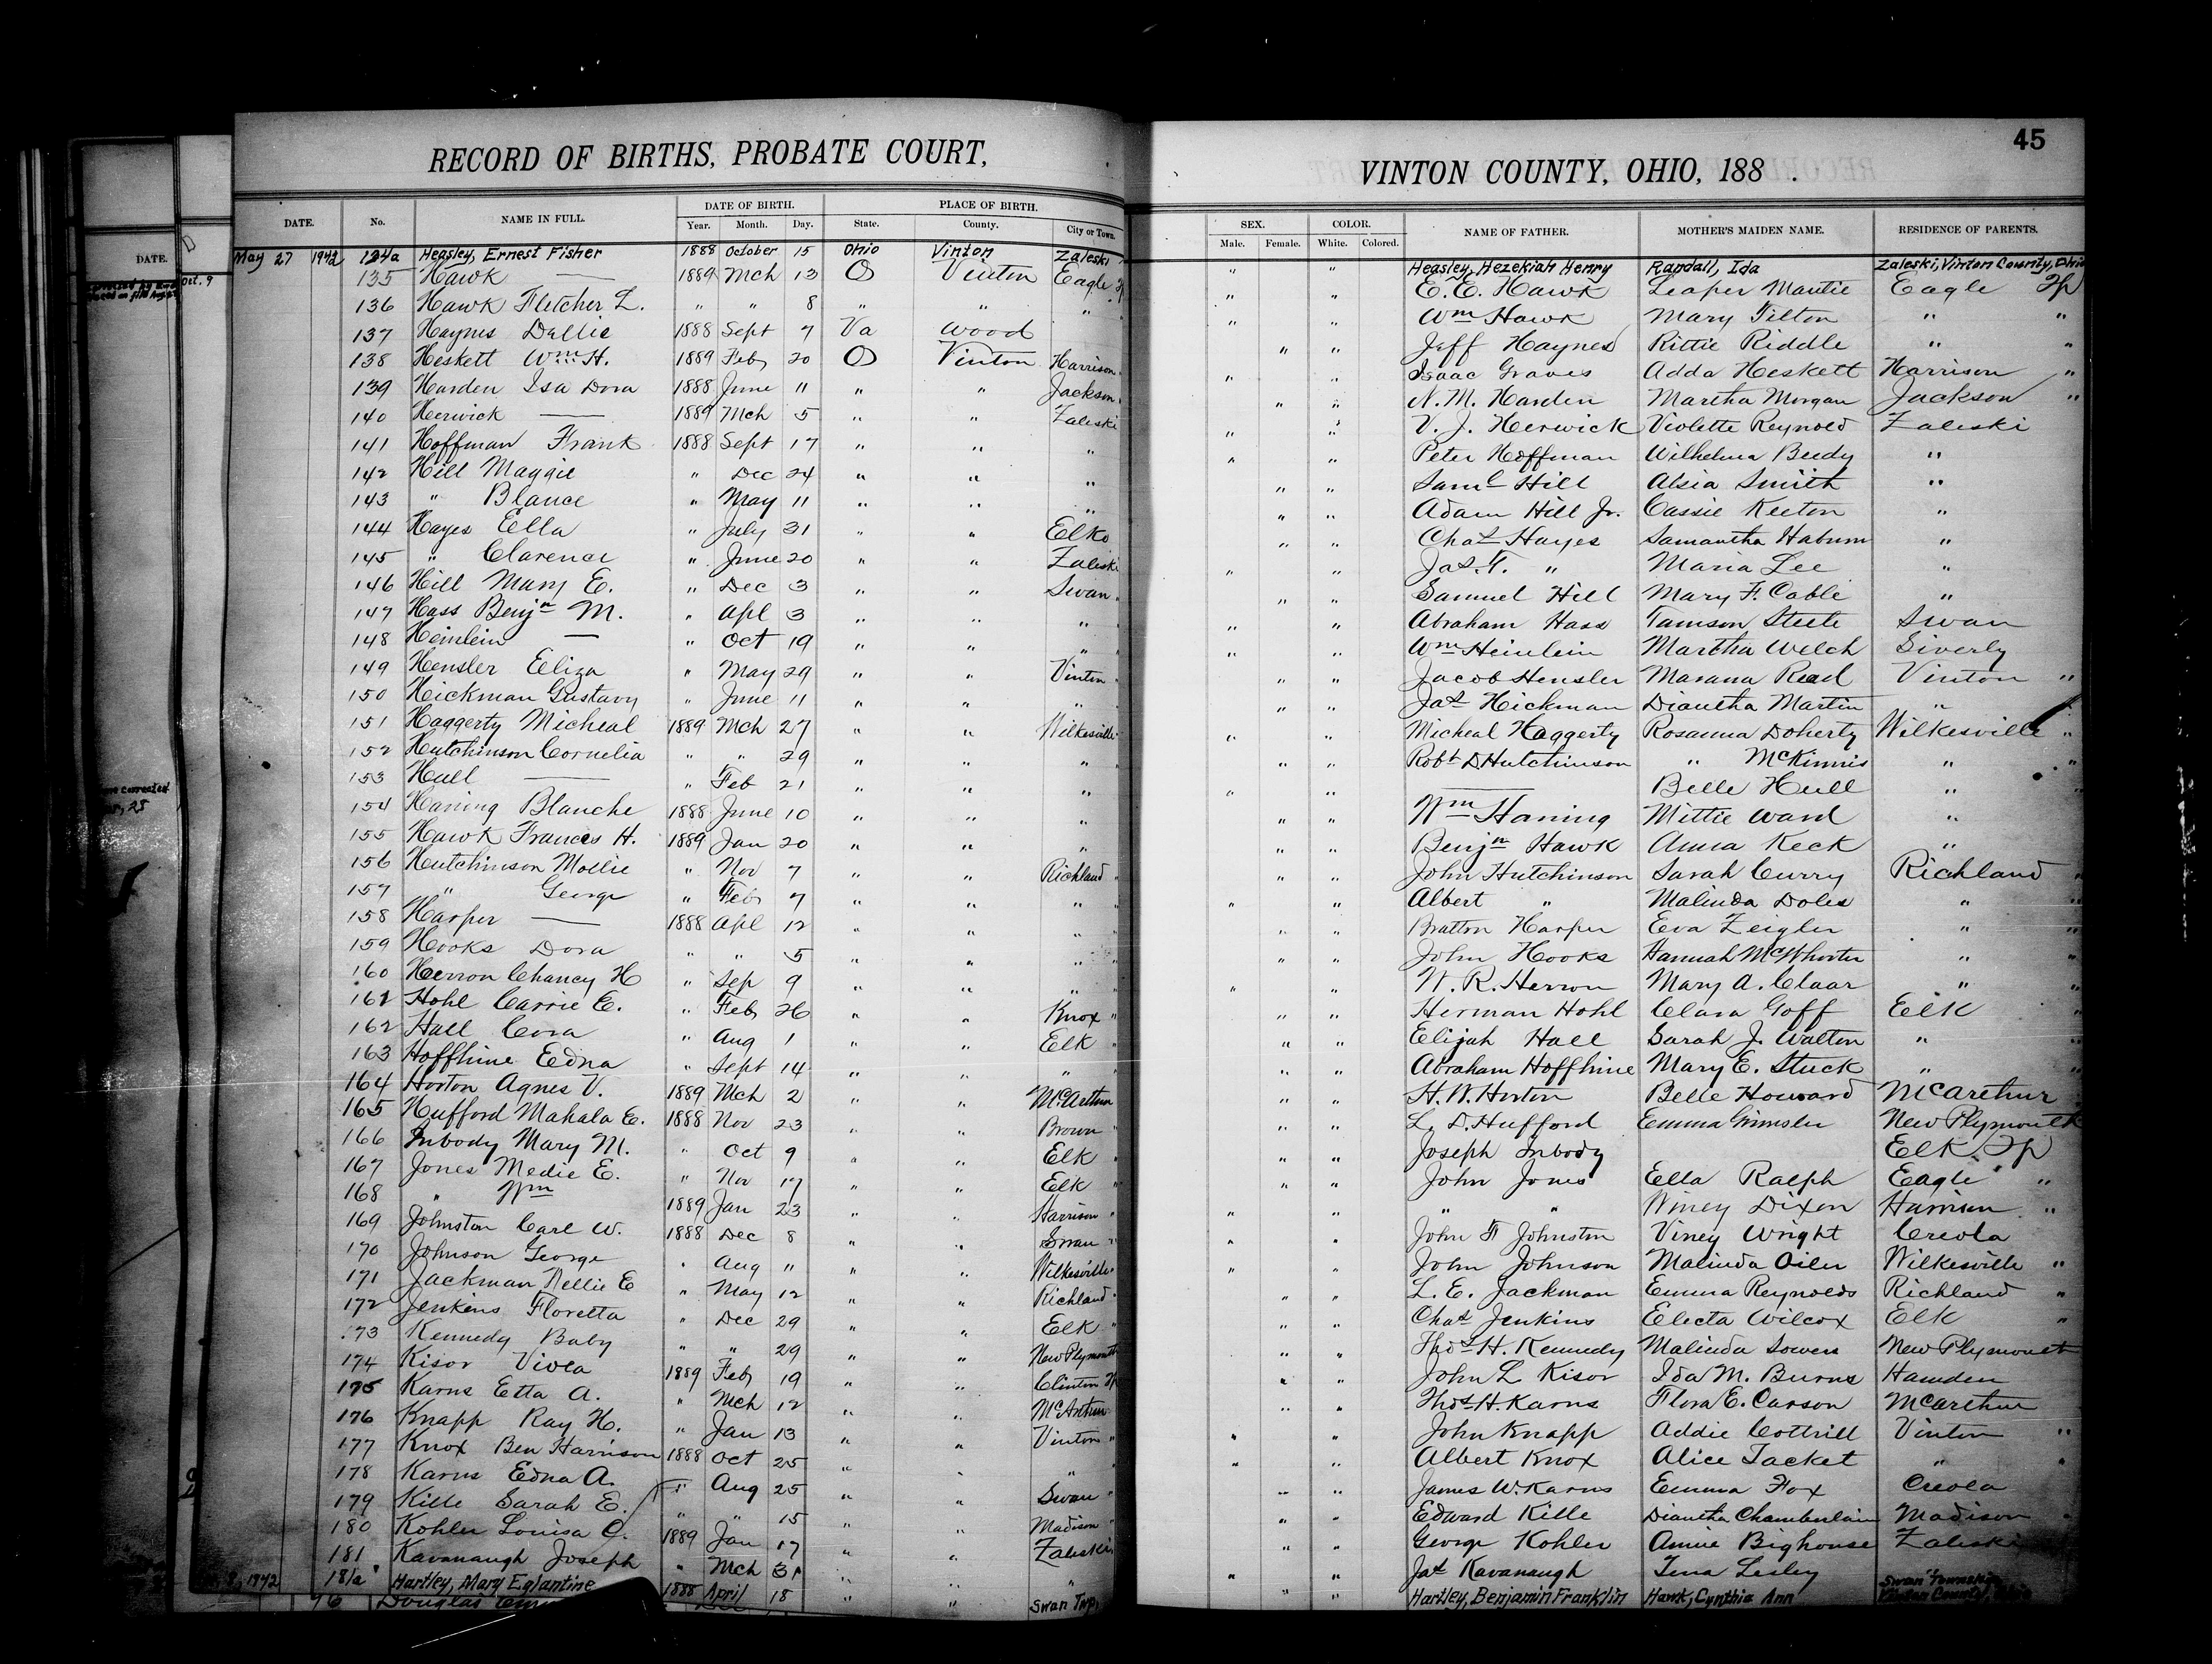 45
RECORD OF BIRTHS, PROBATE COURT, VINTON COUNTY, OHIO, 188 .
DATE. No. NAME IN FULL. DATE OF BIRTH. PLACE OF BIRTH. SEX. COLOR. NAME OF FATHER. MOTHER'S MAIDEN NAME. RESIDENCE OF PARENTS.
DATE. Year. Month. Day. State. County. City or Town. Male. Female. White. Colored.
May 27 1942 134a Heasley, Ernest Fisher 1888 October 15 Ohio Vinton Zaleski " " Heasley, Hezekiah Henry Randall, Ida Zaleski, Vinton County, Ohio
Oct. 9 135 Hawk — 1889 Mch 13 O Vinton Eagle Tp " " E. E. Hawk Leaper Mantie Eagle Tp
136 Hawk Fletcher L. " " 8 " " " " " Wm Hawk Mary Tilton " "
137 Haynes Dallie 1888 Sept 7 Va Wood " " Jeff Haynes Rittie Riddle " "
138 Heskett Wm H. 1889 Feb 20 O Vinton Harrison " " " Isaac Graves Adda Heskett Harrison "
139 Harden Isa Dora 1888 June 11 " " Jackson " " " N. M. Harden Martha Morgan Jackson "
140 Herwick — 1889 Mch 5 " " Zaleski " " V. J. Herwick Violette Reynold Zaleski
141 Hoffman Frank 1888 Sept 17 " " " " " Peter Hoffman Wilhelma Beudy "
142 Hill Maggie " Dec 24 " " " " " Saml Hill Alsia Smith "
143 " Blance " May 11 " " " " " Adam Hill Jr. Cassie Keeton "
144 Hayes Ella " July 31 " " Elko " " Chas Hayes Samantha Haburn "
145 " Clarence " June 20 " " Zaleski " " Jas. T. " Maria Lee "
146 Hill Mary E. " Dec 3 " " Swan " " " Samuel Hill Mary F. Cable "
147 Hass Benjn M. " Apl 3 " " " " " " Abraham Hass Tamson Steele Swan
148 Heinlein — " Oct 19 " " " " " " Wm Heinlein Martha Welch Siverly
149 Hensler Eliza " May 29 " " Vinton " " " Jacob Hensler Marana Read Vinton "
150 Hickman Gustavy " June 11 " " " " " " Jas Hickman Diantha Martin " "
151 Haggerty Micheal 1889 Mch 27 " " Wilkesville " " " Micheal Haggerty Rosanna Doherty Wilkesville "
152 Hutchinson Cornelia " " 29 " " " " " " Robt D. Hutchinson " McKinnis " "
153 Hull — " Feb 21 " " " " " — Belle Hull " "
154 Haning Blanche 1888 June 10 " " " " " Wm Haning Mittie Ward "
155 Hawk Frances H. 1889 Jan 20 " " " " " Benjn Hawk Anna Keck "
156 Hutchinson Mollie " Nov 7 " " Richland " " " John Hutchinson Sarah Curry Richland "
157 " George " Feb 7 " " " " " " Albert " Malinda Doles " "
158 Harper — 1888 Apl 12 " " " " " " Bratton Harper Eva Zeigler " "
159 Hooks Dora " " 5 " " " " " " John Hooks Hannah McWhorter " "
160 Herron Chancy H " Sep 9 " " " " " " W. R. Herron Mary A. Claar " "
161 Hohl Carrie E. " Feb 26 " " Knox " " " Herman Hohl Clara Goff Elk "
162 Hall Cora " Aug 1 " " Elk " " " Elijah Hall Sarah J. Walton " "
163 Hoffhine Edna " Sept 14 " " " " " " Abraham Hoffhine Mary E. Stuck " "
164 Horton Agnes V. 1889 Mch 2 " " McArthur " " H. W. Horton Belle Howard McArthur
165 Hufford Mahala E. 1888 Nov 23 " " Brown " " " L. D. Hufford Emma Grimsler New Plymouth
166 Inbody Mary M. " Oct 9 " " Elk " " " Joseph Inbody Elk Tp
167 Jones Medie E. " Nov 17 " " Elk " " " John Jones Ella Ralph Eagle "
168 " Wm 1889 Jan 23 " " Harrison " " " " " Winey Dixon Harrison "
169 Johnston Carl W. 1888 Dec 8 " " Swan " " " John F Johnston Viney Wright Creola
170 Johnson George " Aug 11 " " Wilkesville " " " John Johnson Malinda Oiler Wilkesville "
171 Jackman Nellie E " May 12 " " Richland " " " L. E. Jackman Emma Reynolds Richland "
172 Jenkins Floretta " Dec 29 " " Elk " " " Chas Jenkins Electa Wilcox Elk "
173 Kennedy Baby " " 29 " " New Plymouth " " Thos H. Kennedy Malinda Sowers New Plymouth
174 Kisor Viola 1889 Feb 19 " " Clinton Tp " " John L Kisor Ida M. Burns Hamden
175 Karns Etta A. " Mch 12 " " McArthur " " Thos H. Karns Flora E. Carson McArthur
176 Knapp Ray H. " Jan 13 " " Vinton " " " John Knapp Addie Cottrill Vinton "
177 Knox Ben Harrison 1888 Oct 25 " " " " " " Albert Knox Alice Tacket " "
178 Karns Edna A. " Aug 25 " " Swan " " " James W. Karns Emma Fox Creola
179 Kille Sarah E. " " 15 " " Madison " " " Edward Kille Diantha Chamberlain Madison "
180 Kohler Louisa C. 1889 Jan 17 " " Zaleski " " George Kohler Annie Bighouse Zaleski
181 Kavanaugh Joseph " Mch 31 " " " " " Jas Kavanaugh Tena Lesley
1942 181a Hartley, Mary Eglantine 1888 April 18 " " Swan Twp. " " Hartley, Benjamin Franklin Hawk, Cynthia Ann Swan Township Vinton County, Ohio
96 Douglas